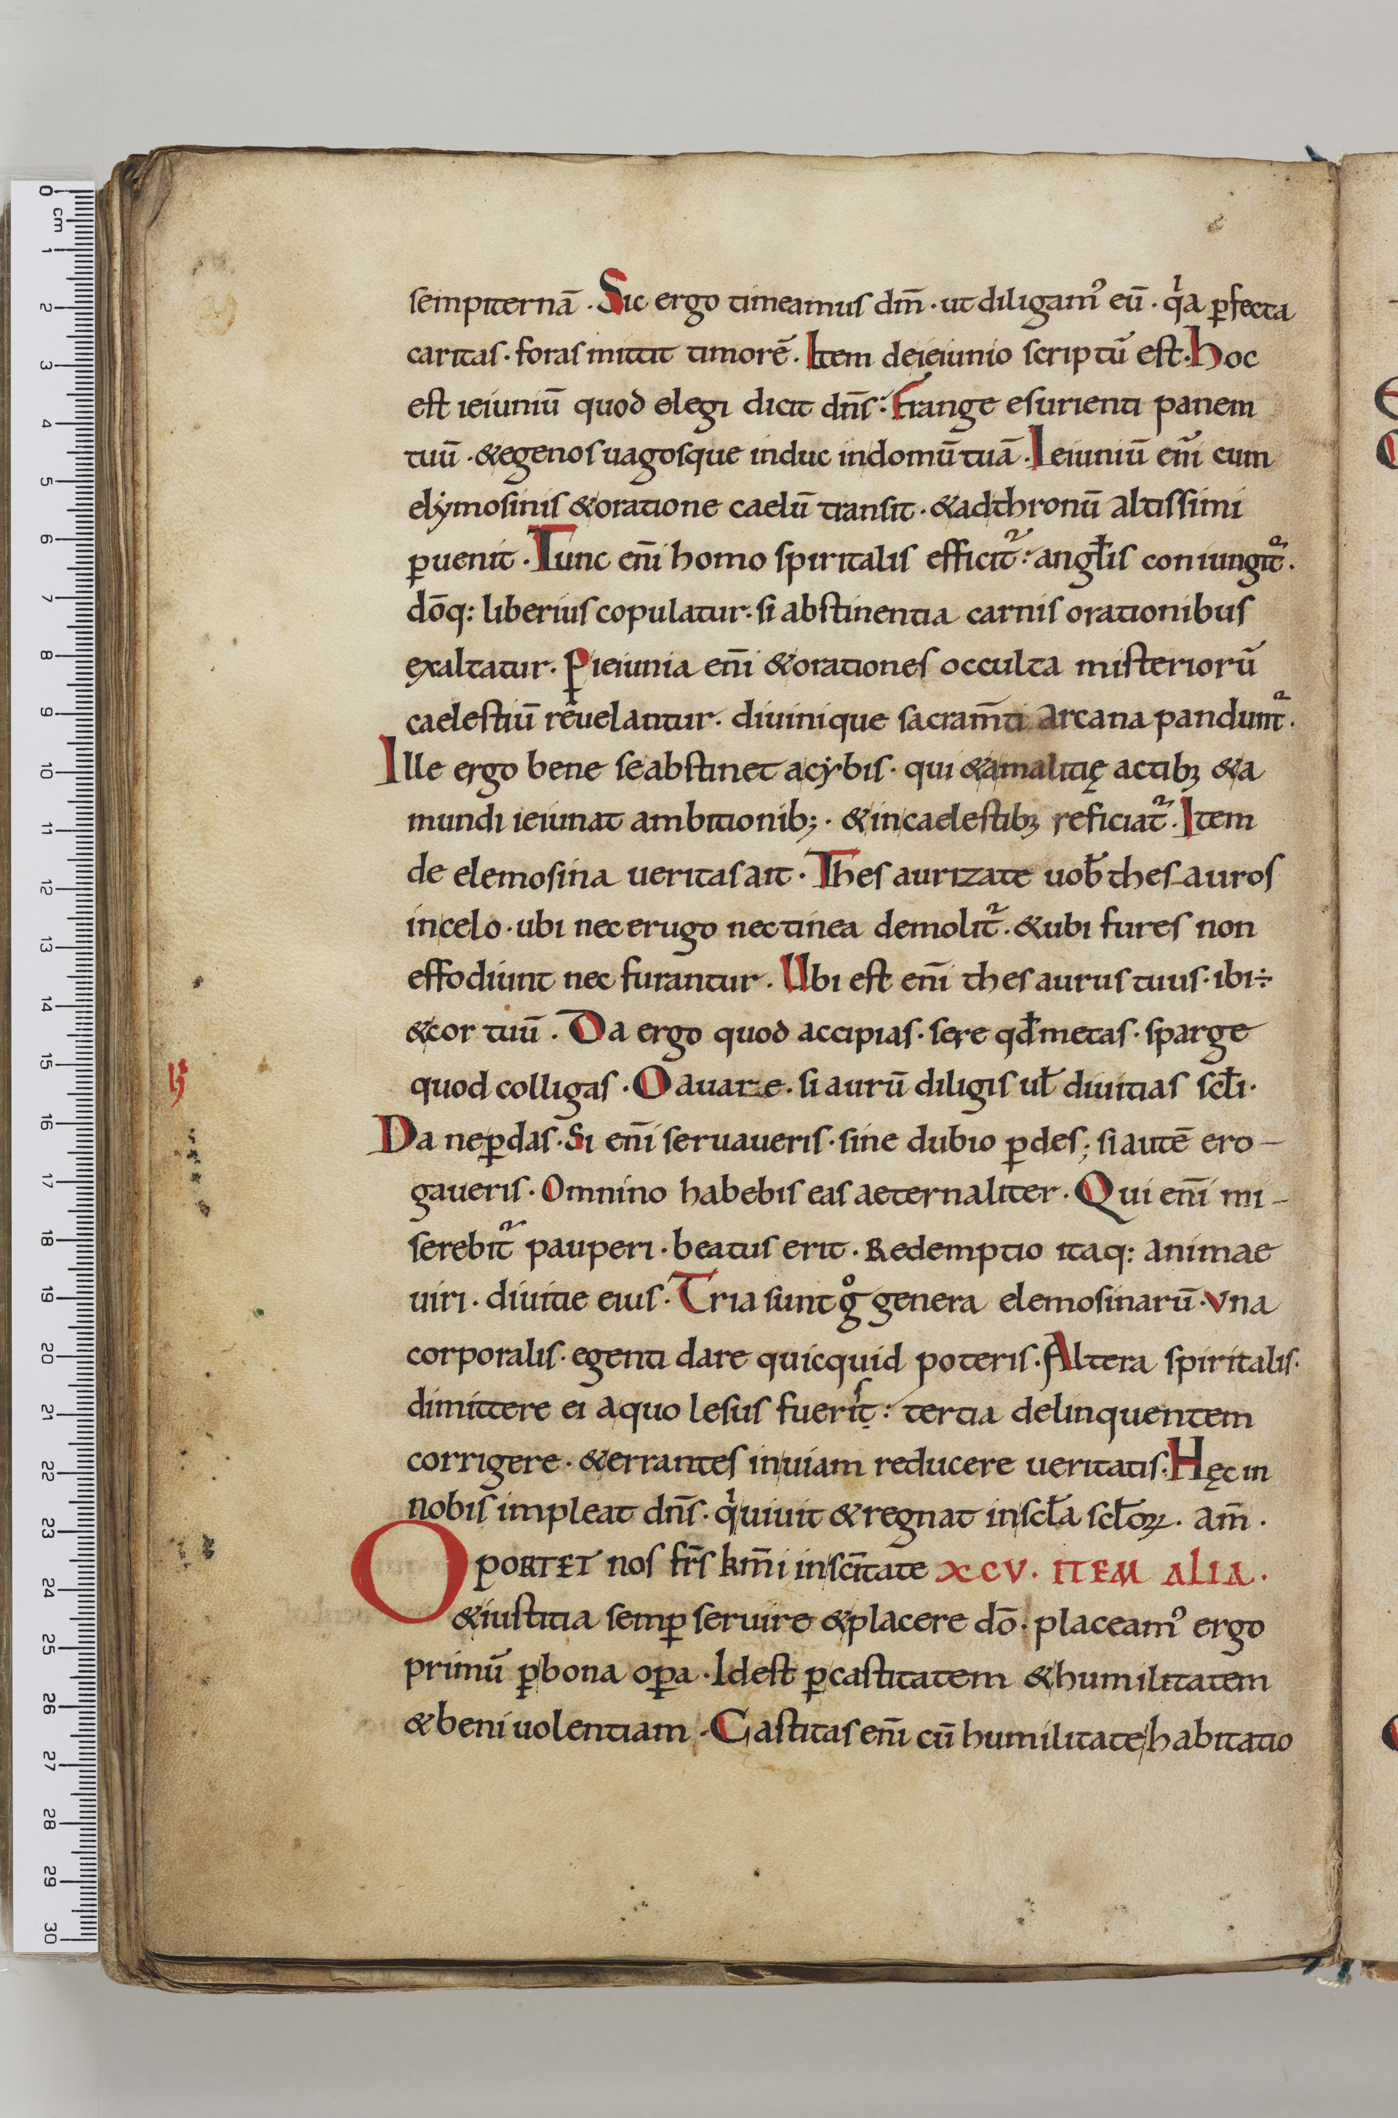 sempiternā · Sic ergo timeamus dm̄ · ut diligam᾿ eū · qͥa ꝑfecta
caritas · foras mittit timorē · Item deieiunio scriptū est · hoc
est ieiuniū quod elegi dicit dn̄s : Frange esurienti panem
tuū · &egenos uagosque induc indomū tuā · Ieiuniū eni̅ cum
elẏmosinis &oratione caelū transit · &adthronū altissimi
ꝑuenit · Tunc eni̅ homo spiritalis efficit᷑ : angłis coniungit᷑ ·
dōq: liberius copulatur · si abstinentia carnis orationibus
exaltatur · P ieiunia eni̅ &orationes occulta misteriorū
caelestiū reuelantur · diuinique sacram̄ti arcana pandunt᷑ ·
Ille ergo bene se abstinet acẏbis · qui &amalitię actibꝫ &a
mundi ieiunat ambitionib; · &incaelestibꝫ reficiat᷑ · Item
de elemosina ueritas ait · Thesaurizate uob̄ thesauros
incelo · ubi nec erugo nec tinea demolit᷑ · &ubi fures non
effodiunt nec furantur · Ubi est eni̅ thesaurus tuus · ibi ÷
&cor tuū · Da ergo quod accipias · sere qđ metas · sparge
quod colligas · O auare · si aurū diligis uł diuitias scłi ·
Da neꝑdas · Si eni̅ seruaueris · sine dubio ꝑdes ; si autē ero-
gaueris · Omnino habebis eas aeternaliter · Qui eni̅ mi-
serebit᷑ pauperi · beatus erit · Redemptio itaq: animae
uiri · diuitie eius · Tria sunt gͦ genera elemosinarū · Vna
corporalis · egenti dare quicquid poteris · Altera spiritalis ·
dimittere ei aquo lesus fueris : tertia delinquentem
corrigere · &errantes inuiam reducere ueritatis · Hęc in
nobis impleat dn̄s · qͥ uiuit &regnat inscła scłoꝝ · am̄ ·
OPORTET nos fr̄s km̄i insci̅tate XCV · ITEM ALIA ·
&iustitia semꝑ seruire &placere dō · placeam᾿ ergo
primū ꝑbona oꝑa · Idest ꝑcastitatem &humilitatem
&beniuolentiam · Castitas eni̅ cū humilitate habitatio